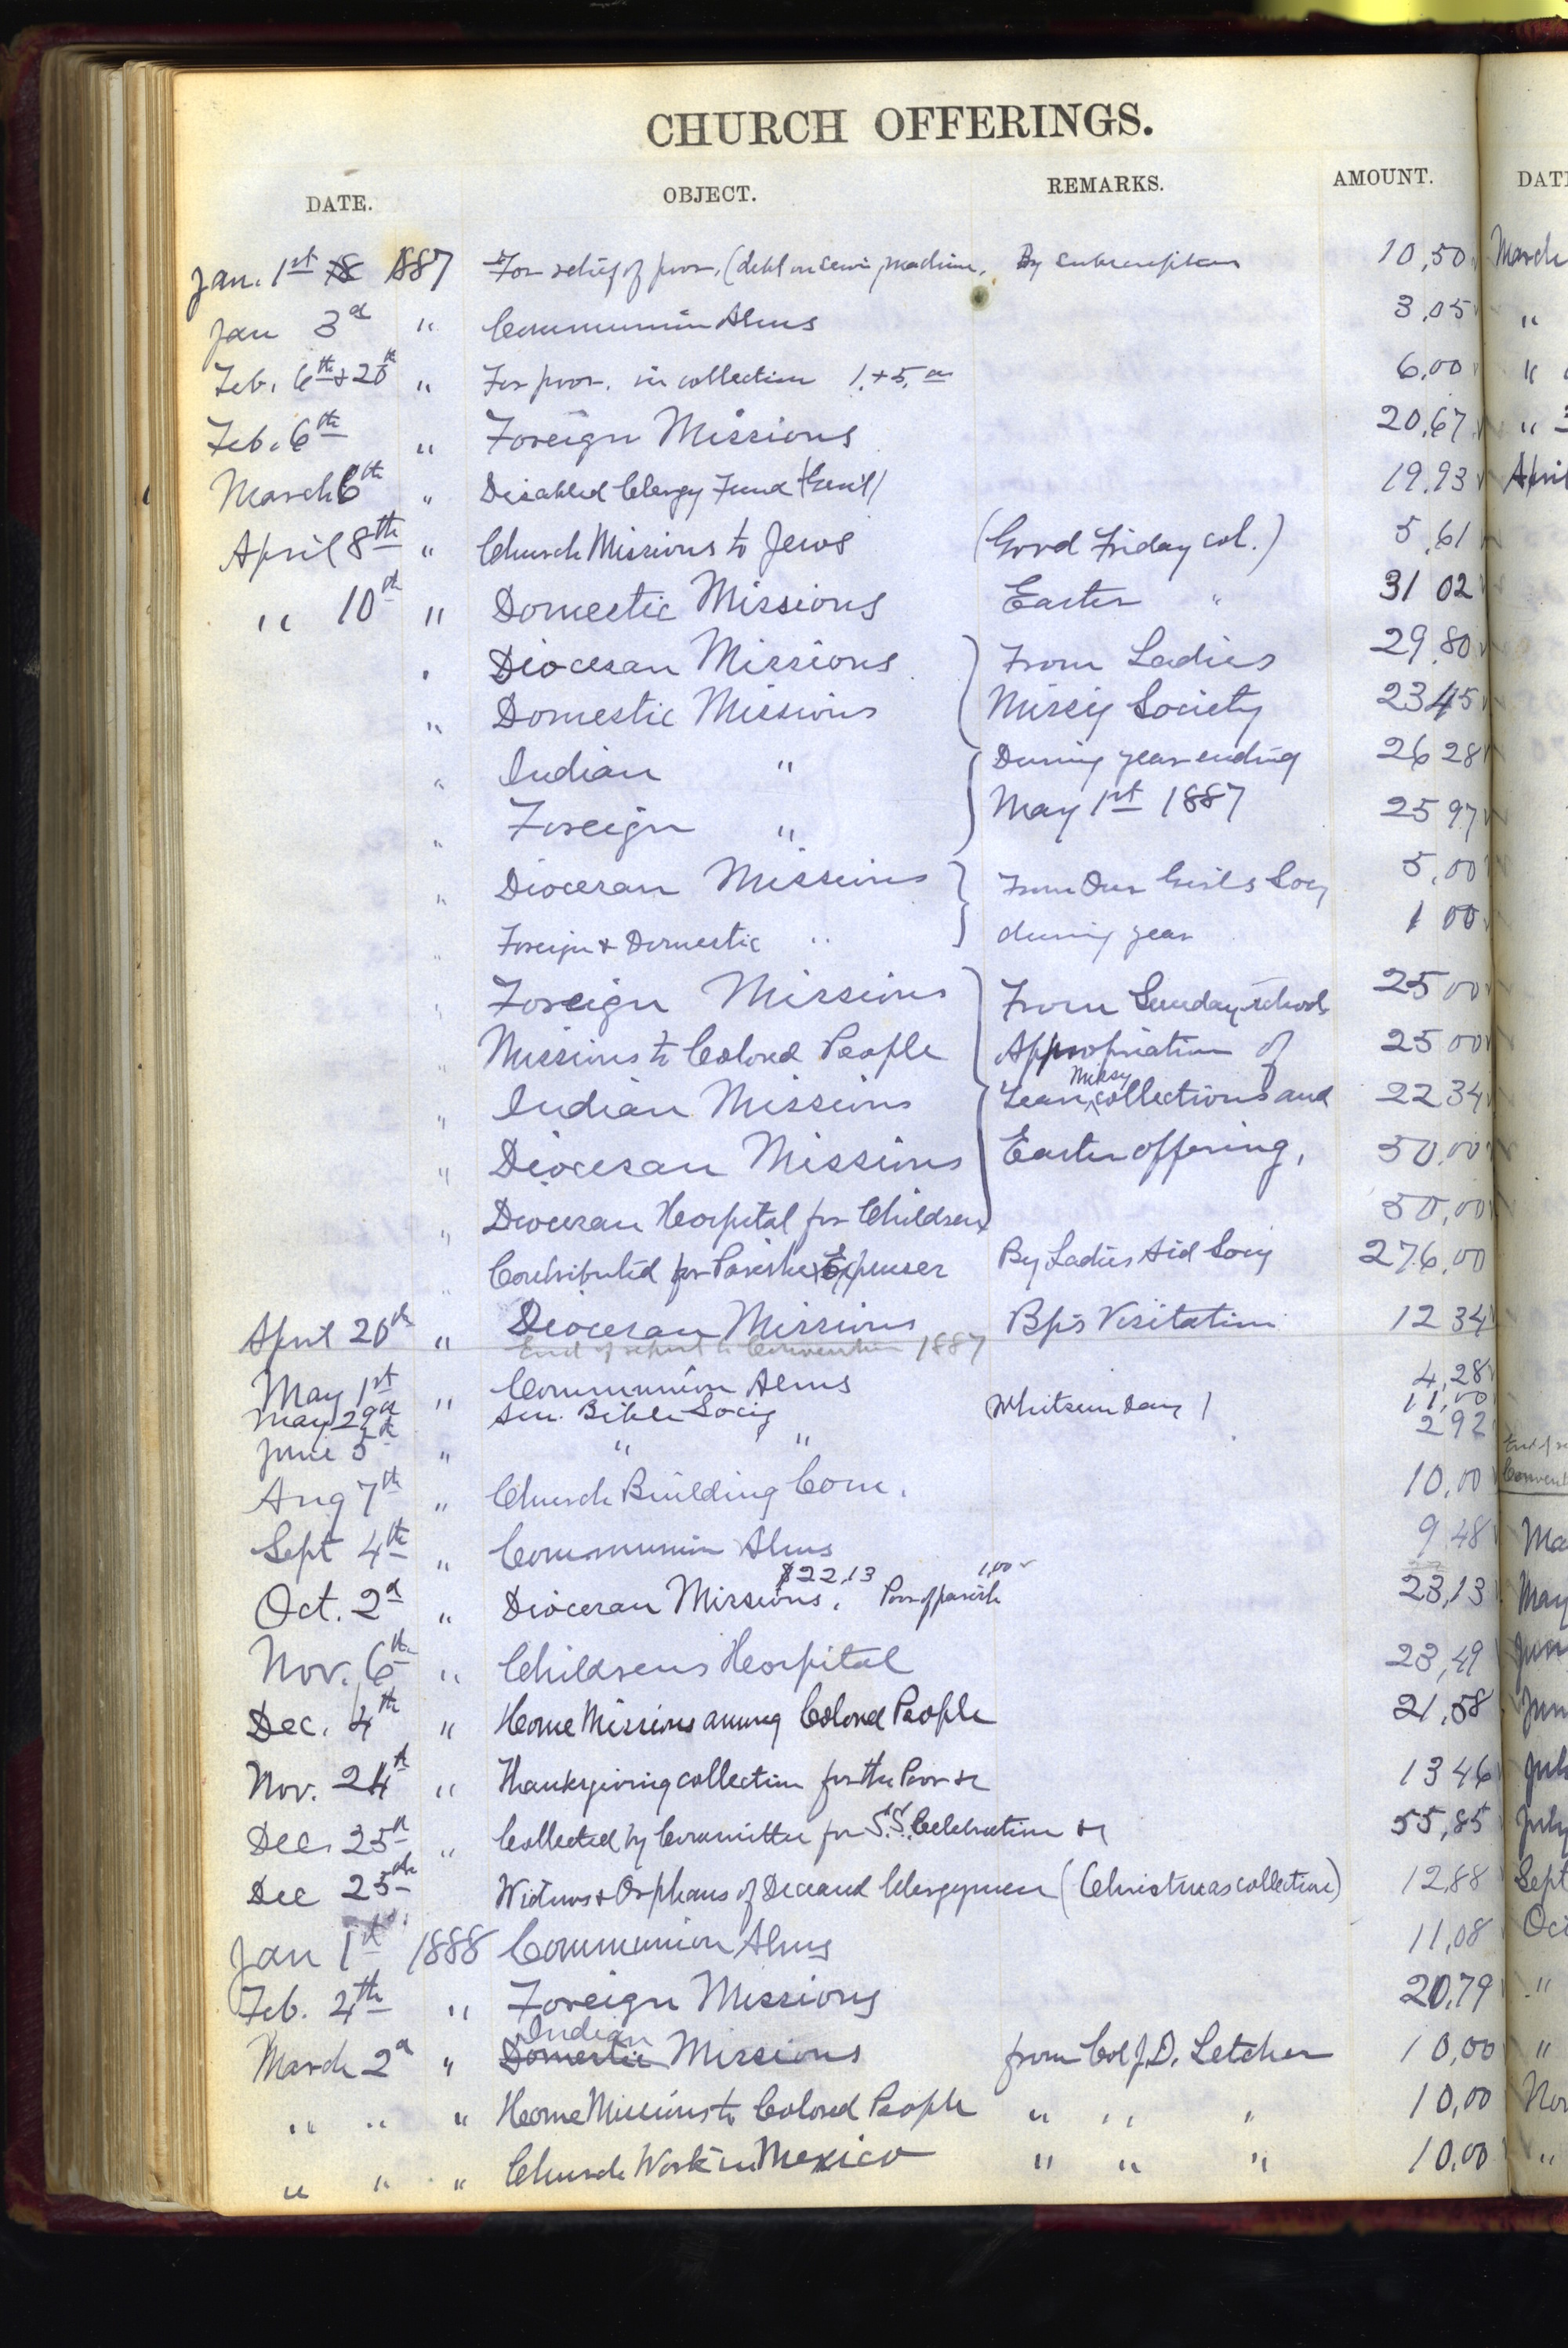 CHURCH OFFERINGS.
DATE. OBJECT. REMARKS. AMOUNT. DATE
Jan. 1st 1887 For relief of poor, (debt on sewing machine, By subscription 10,50 March
Jan 3d " Communion Alms 3,05 "
Feb. 6th & 20th " For poor, in collection 1. + 5.00 6,00 "
Feb. 6th " Foreign Missions 20,67 "
March 6th " Disabled Clergy Fund (Gen'l) 19,93 April
April 8th " Church Missions to Jews (Good Friday col.) 5,61
" 10th " Domestic Missions Easter " 31 02
" Diocesan Missions From Ladies 29,80
" Domestic Missions Miss'y Society 23 45
" Indian " During year ending 26 28
" Foreign " May 1st 1887 25 97
" Diocesan Missions From Our Girls Socy 5,00
" Foreign & Domestic " during year 1 00
" Foreign Missions From Sunday-school 25 00
" Missions to Colored People Appropriation of 25 00
Missy
" Indian Missions collections and 22 34
" Diocesan Missions Easter offering, 50,00
" Diocesan Hospital for Children 50,00
" Contributed for Parish Expenses By Ladies Aid Socy 276,00
April 20th " Diocesan Missions Bp's Visitation 12 34
End of report to Convention 1887
May 1st " Communion Alms 4,28
May 29th Am. Bible Socig Whitsunday 11,00
June 5th " " " 2 92
Aug 7th " Church Building Com. 10,00
Sept 4th " Communion Alms 9 48 Ma
$22,13 1,00
Oct. 2d " Diocesan Missions, Poor of parish 23,13 May
Nov. 6th " Childrens Hospital 23,49 June
Dec. 4th " Home Missions among Colored People 21,58 June
Nov. 24th " Thanksgiving collection for the Poor &c 13 46 July
Dec 25th " Collected by Committee for S.S. Celebration &c 55,85 July
Dec 25th Widows & Orphans of Deceased Clergymen (Christmas collection) 12,88 Sept
Jan 1st 1888 Communion Alms 11,08 Oct
Feb. 4th " Foreign Missions 20,79 "
Indian
March 2d " Domestic Missions from Col J.D. Letcher 10,00 "
" " " Home Missions to Colored People " " " 10,00 Nov
" " " Church Work in Mexico " " " 10,00 "